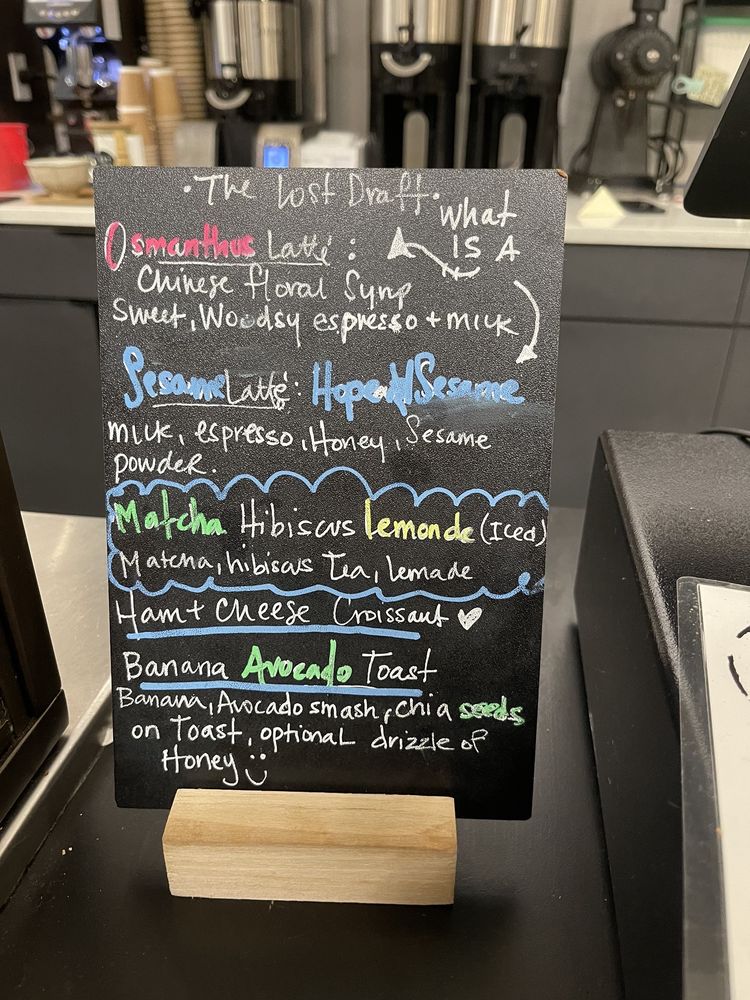 ·The Lost Draft·
What
IS A
Osmanthus Latté :
Chinese floral Syrup
Sweet, Woodsy espresso + milk
Sesame Latté: Hope
Sesame
milk, espresso, Honey, Sesame
powder.
Matcha Hibiscus Lemonde (Iced)
Matcha, hibiscus Tea, lemade
Ham + Cheese Croissant ♥
Banana Avocado Toast
Banana, Avocado smash, chia seeds
on Toast, optional drizzle of
Honey :)